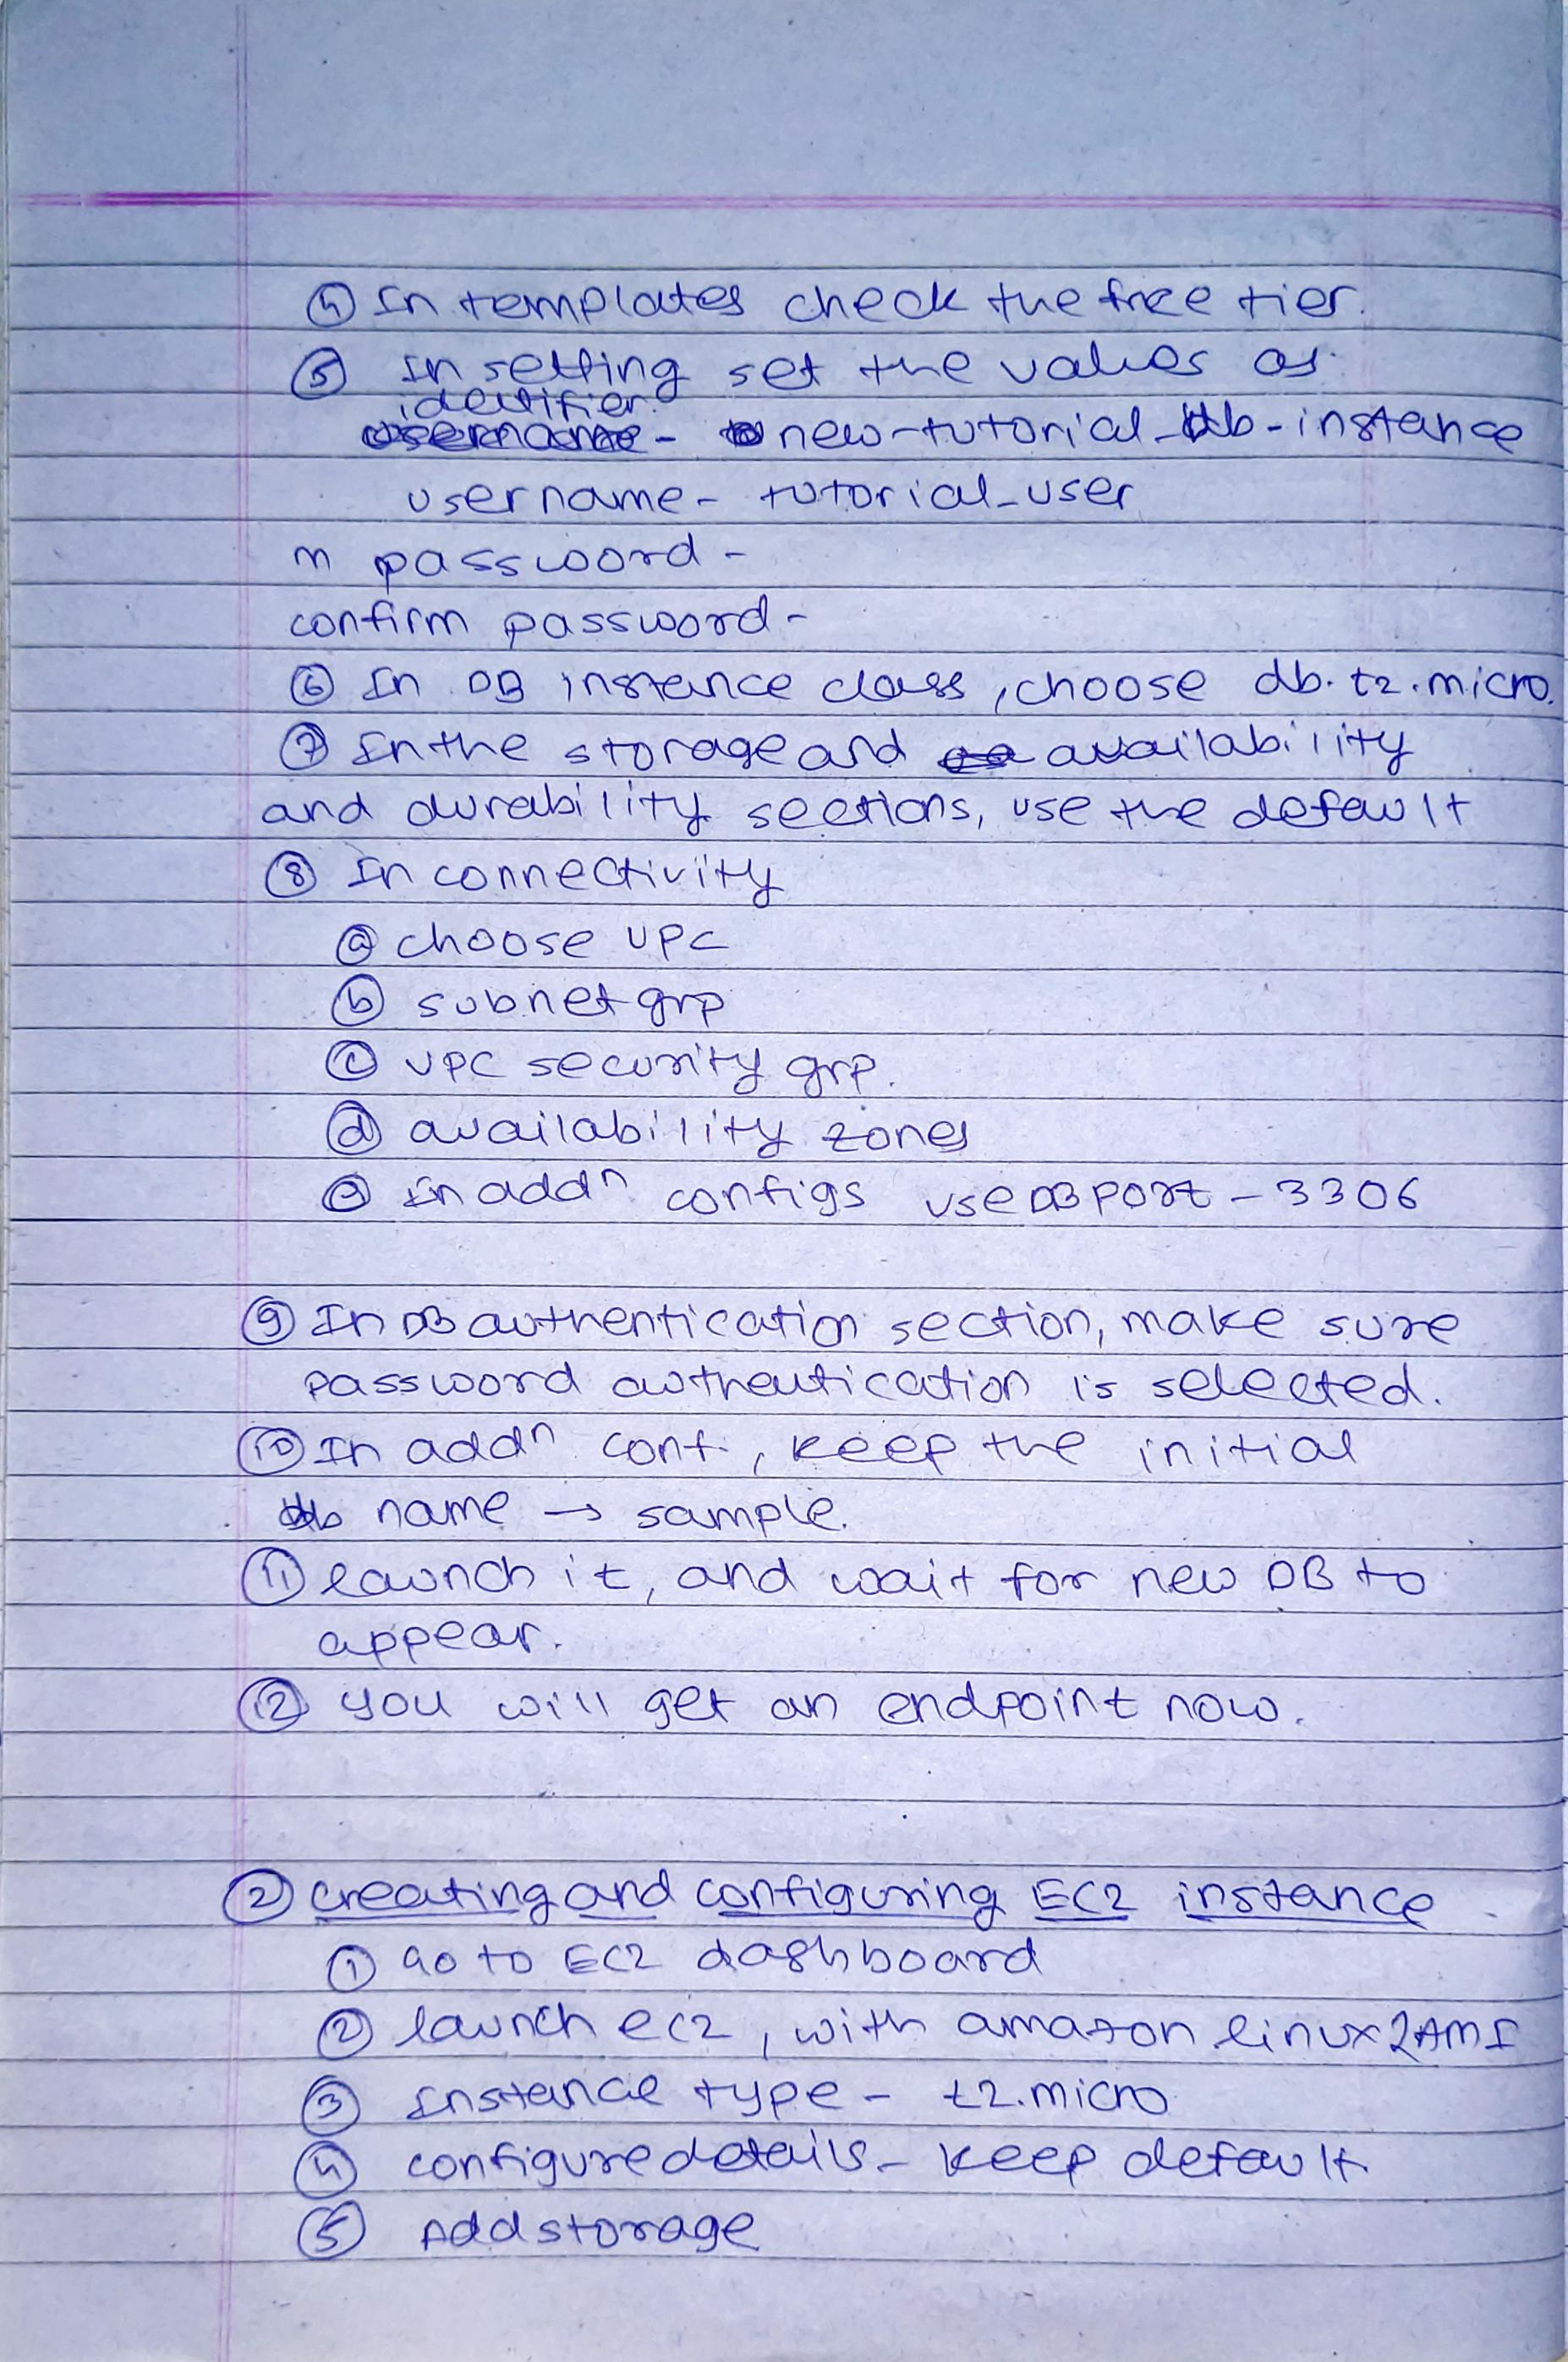 ④ In templates check the free tier.
⑤ In setting set the values as
identifier
username - new-tutorial-db-instance
username - tutorial_user
m password -
confirm password -
⑥ In DB instance class, choose db.t2.micro.
⑦ In the storage and availability
and durability sections, use the default
⑧ In connectivity
ⓐ choose VPC
ⓑ subnet grp
ⓒ VPC security grp.
ⓓ availability zones
ⓔ In addⁿ configs use DB port - 3306
⑨ In DB authentication section, make sure
password authentication is selected.
⑩ In addⁿ conf., keep the initial
db name → sample.
⑪ launch it, and wait for new DB to
appear.
⑫ you will get an endpoint now.
② creating and configuring EC2 instance
① Go to EC2 dashboard
② launch ec2, with amazon linux 2 AMI
③ Instance type - t2.micro
④ configure details - keep default
⑤ Add storage